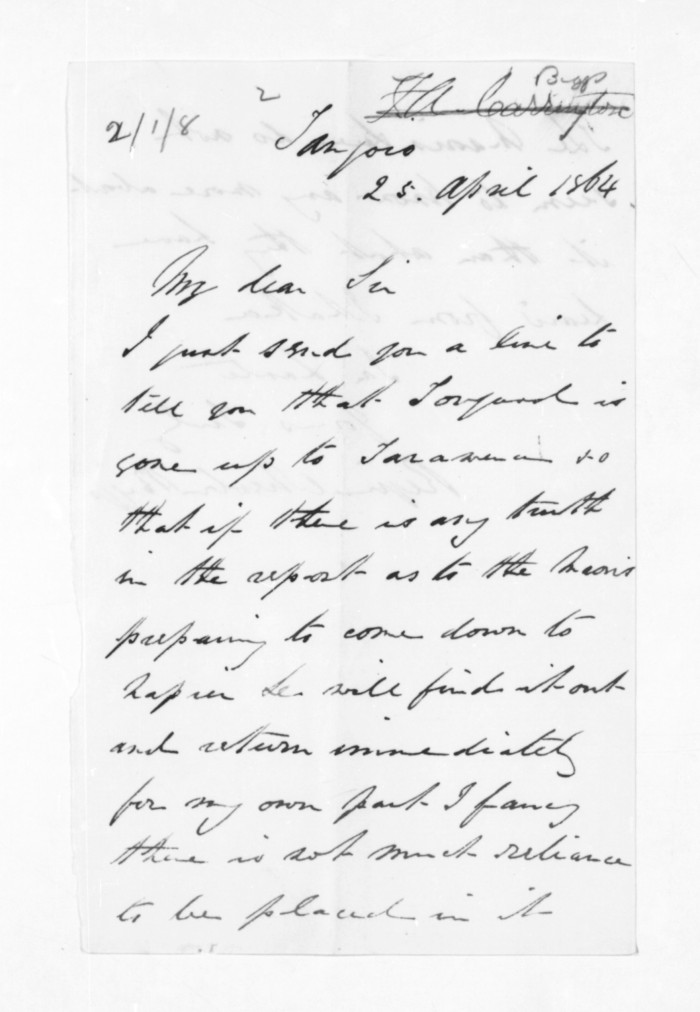 Biggs
F.A. Carrington
2/1/8
2
Tangoio
25. April 1864
My dear Sir
I just send you a line to
tell you that Torquard is
gone up to Tarawera so
that if there is any truth
in the report as to the Maoris
preparing to come down to
Napier he will find it out
and return immediately
for my own part I fancy
there is not much reliance
to be placed in it